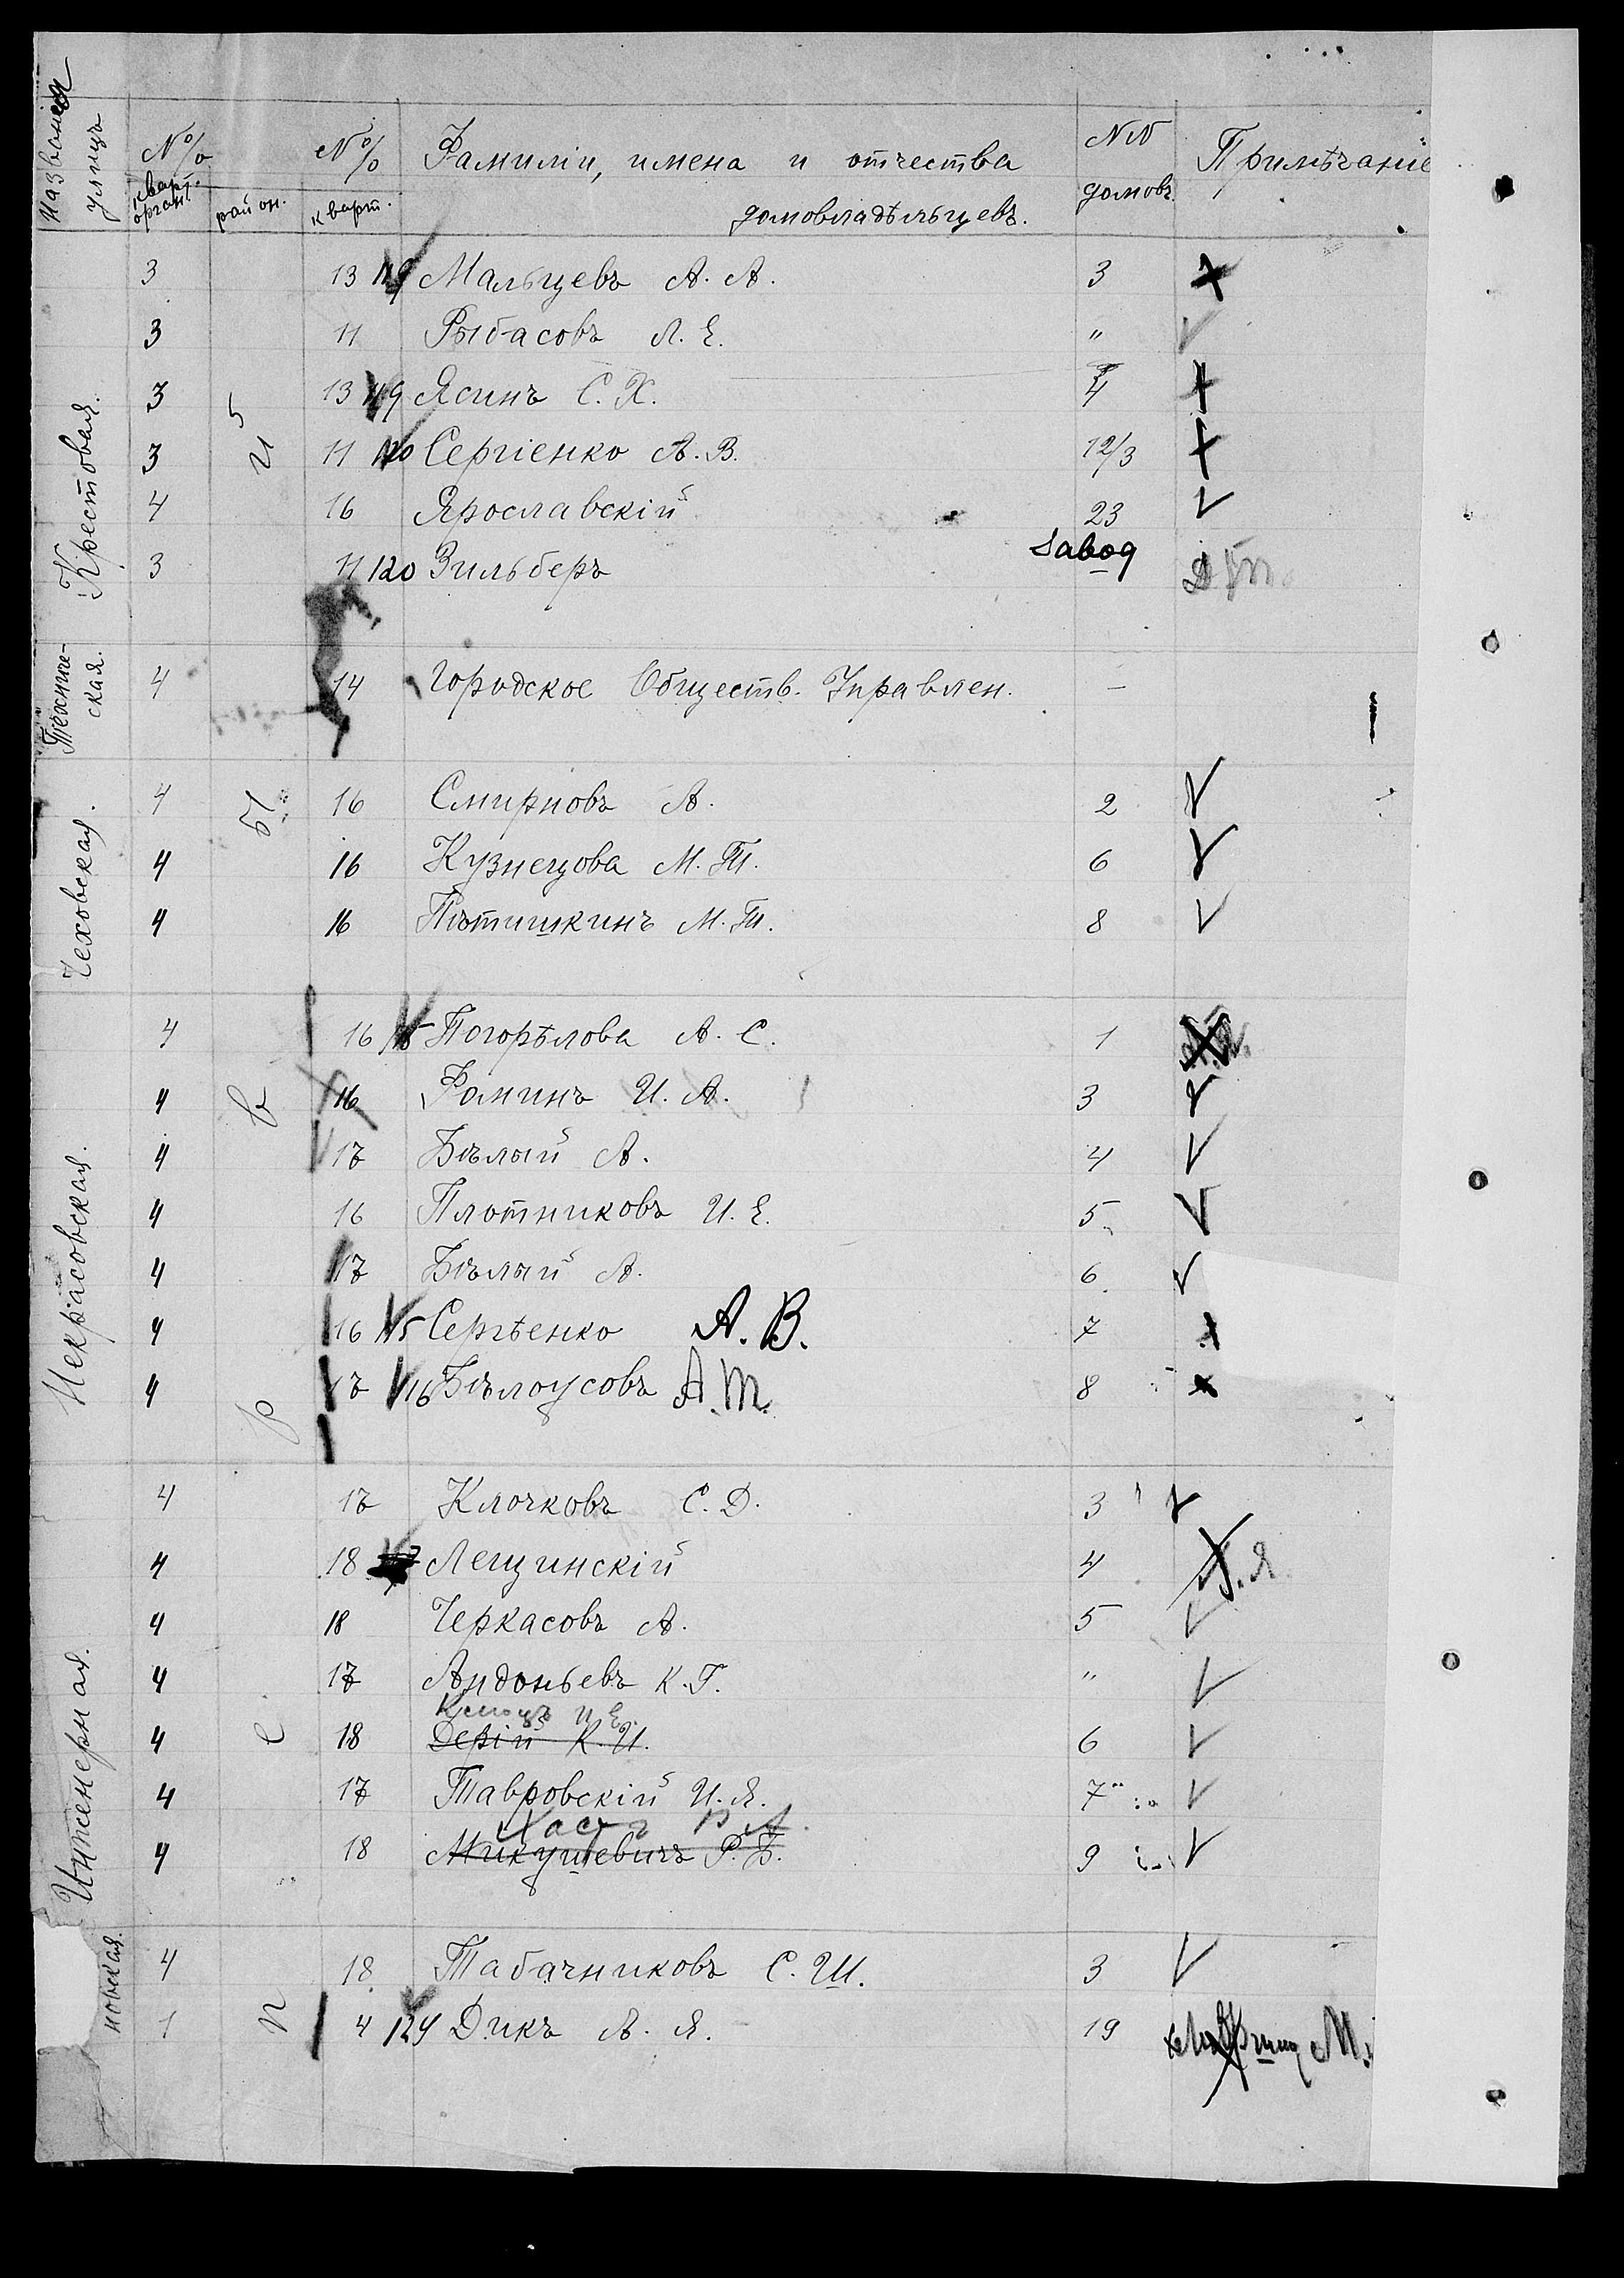 Названія улицъ № кварт. орган. район. № кварт. Фамиліи, имена и отчества домовладѣльцевъ. №№ домовъ. Примѣчаніе
Крестовая.
3 13 119 Мальцевъ А. А. 3
3 11 Рыбасовъ Л. Е. "
3 13 119 Ясинъ С. Х. 4
3 11 120 Сергіенко А. В. 12/3
4 16 Ярославскій 23
3 11 120 Зильберъ завод
Техниче-
ская.
4 14 Городское Обществ. Управлен. —
Чеховская.
4 16 Смирновъ А. 2
4 16 Кузнецова М. Т. 6
4 16 Пѣтишкинъ М. Т. 8
Некрасовская.
4 16 115 Погорѣлова А. С. 1
4 16 Фоминъ И. А. 3
4 17 Бѣлый А. 4
4 16 Плотниковъ И. Е. 5
4 17 Бѣлый А. 6
4 16 115 Сергѣенко А. В. 7
4 17 116 Бѣлоусовъ А. Т. 8
Инженерная.
4 17 Клочковъ С. Д. 3
4 18 Лещинскій 4
4 18 Черкасовъ А. 5
4 17 Андоньевъ К. Г. "
4 18 Дерій К. И. 6
4 17 Тавровскій И. Я. 7
4 18 Микушевичъ Р. Б. 9
новская.
4 18 Табачниковъ С. Ш. 3
1 4 124 Дикъ А. Я. 19